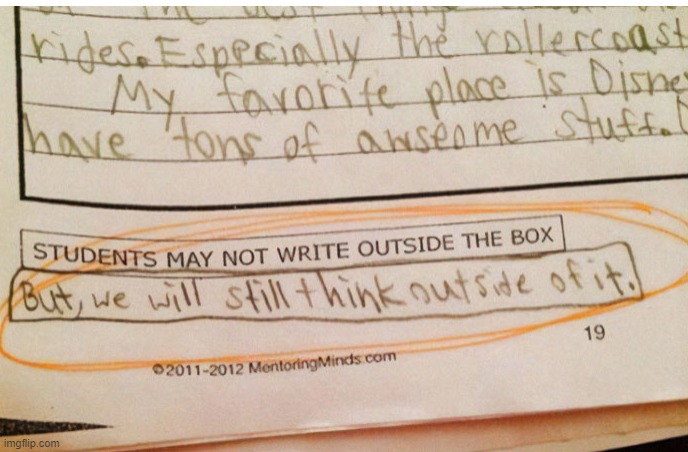 rides. Especially the rollercoast
My favorite place is Disne
have tons of awseome stuff.
STUDENTS MAY NOT WRITE OUTSIDE THE BOX
But, we will still think outside of it.
19
©2011-2012 MentoringMinds.com
imgflip.com